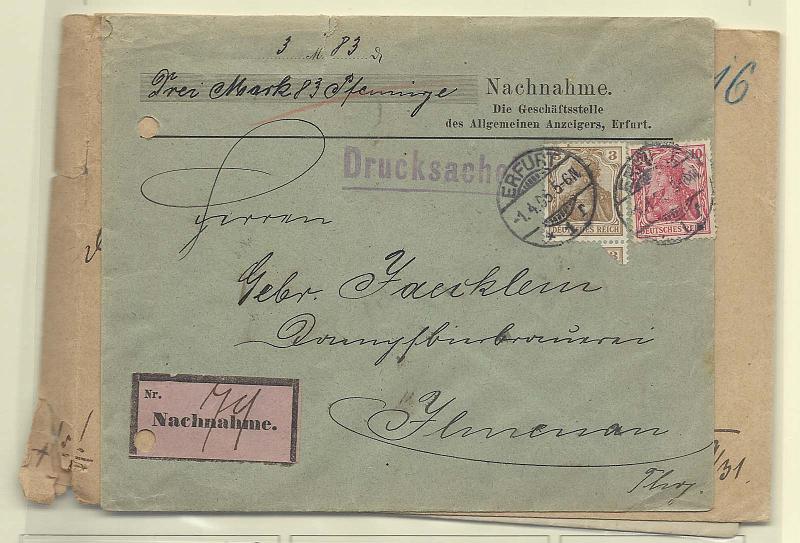 3 M. 83 ₰
Drei Mark 83 Pfennige
Nachnahme.
Die Geschäftsstelle
des Allgemeinen Anzeigers, Erfurt.
Drucksache
ERFURT
1.4.05. 5-6N.
* 1 r
3
DEUTSCHES REICH
10
DEUTSCHES REICH
3
16
Herren
Gebr. Jaecklein
Dampfbierbrauerei
Ilmenau
Thrg.
Nr. 74
Nachnahme.
/31.